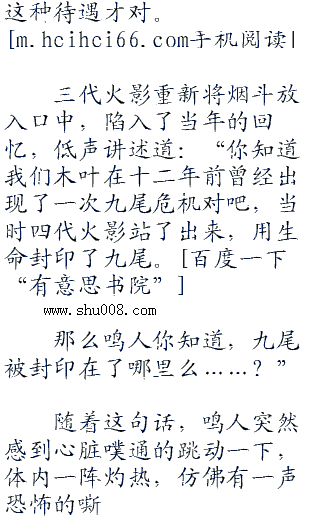 这种待遇才对。
[m.hcihci66.com手机阅读|
三代火影重新将烟斗放
入口中，陷入了当年的回
忆，低声讲述道：“你知道
我们木叶在十二年前曾经出
现了一次九尾危机对吧，当
时四代火影站了出来，用生
命封印了九尾。[百度一下
“有意思书院”]
www.shu008.com
那么鸣人你知道，九尾
被封印在了哪里么……？”
随着这句话，鸣人突然
感到心脏噗通的跳动一下，
体内一阵灼热，仿佛有一声
恐怖的嘶